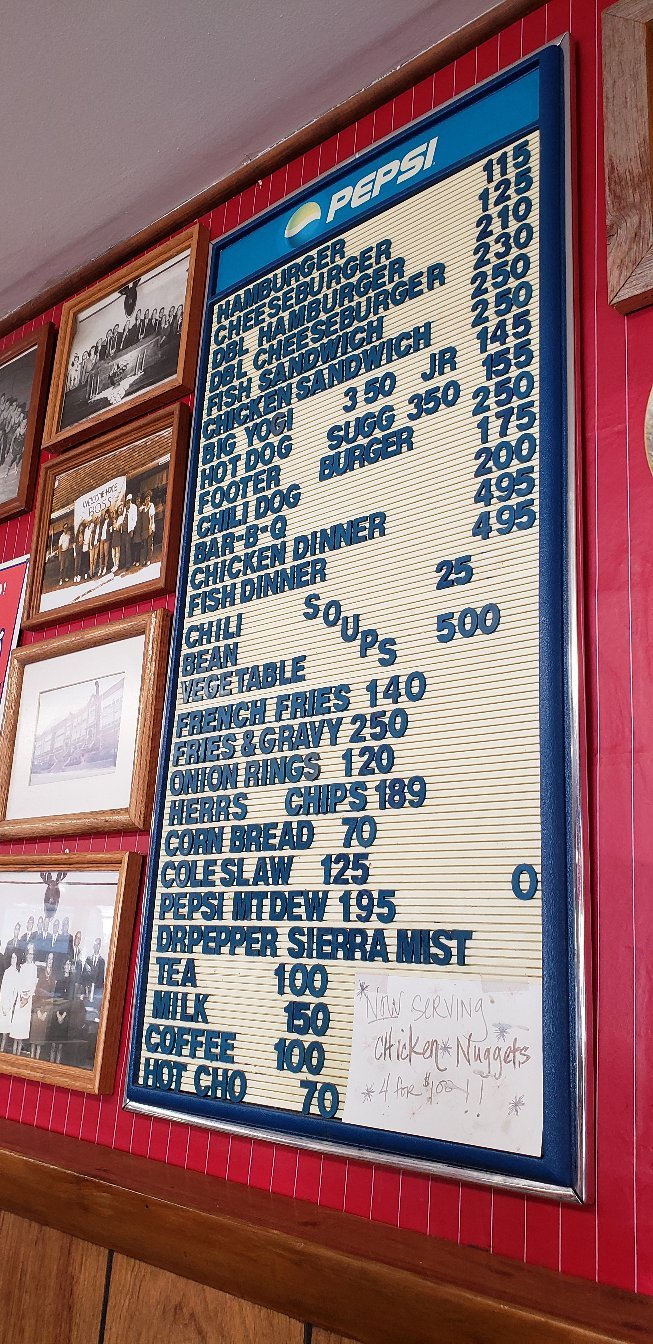 PEPSI
HAMBURGER 115
CHEESEBURGER 125
DBL HAMBURGER 210
DBL CHEESEBURGER 230
FISH SANDWICH 250
CHICKEN SANDWICH 250
BIG YOGI 350 JR 145
HOT DOG SUGG 350 155
FOOTER BURGER 250
CHILI DOG 175
BAR-B-Q 200
CHICKEN DINNER 495
FISH DINNER 495
CHILI SOUPS 25
BEAN
VEGETABLE 500
FRENCH FRIES 140
FRIES & GRAVY 250
ONION RINGS 120
HERRS CHIPS 189
CORN BREAD 70
COLE SLAW 125
PEPSI MT DEW 195 0
DR PEPPER SIERRA MIST
TEA 100
MILK 150
COFFEE 100
HOT CHO 70
NOW SERVING
Chicken Nuggets
4 for $1.00!!